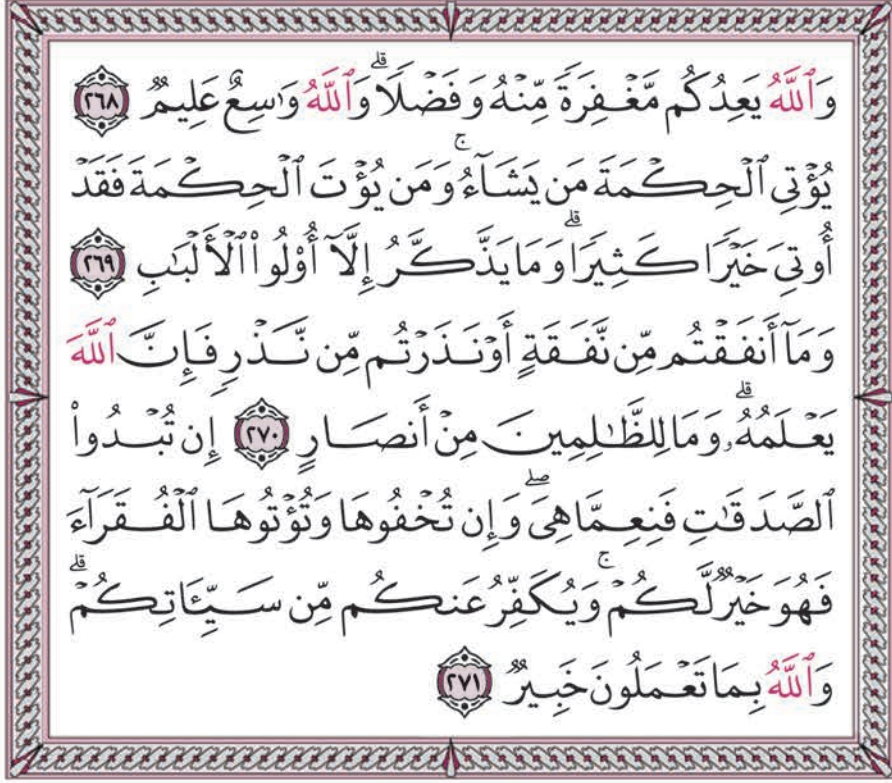 وَٱللَّهُ يَعِدُكُم مَّغْفِرَةً مِّنْهُ وَفَضْلًاۗ وَٱللَّهُ وَٰسِعٌ عَلِيمٌ ٢٦٨
يُؤْتِى ٱلْحِكْمَةَ مَن يَشَآءُۚ وَمَن يُؤْتَ ٱلْحِكْمَةَ فَقَدْ
أُوتِىَ خَيْرًا كَثِيرًاۗ وَمَا يَذَّكَّرُ إِلَّآ أُو۟لُوا۟ ٱلْأَلْبَٰبِ ٢٦٩
وَمَآ أَنفَقْتُم مِّن نَّفَقَةٍ أَوْ نَذَرْتُم مِّن نَّذْرٍ فَإِنَّ ٱللَّهَ
يَعْلَمُهُۥۗ وَمَا لِلظَّٰلِمِينَ مِنْ أَنصَارٍ ٢٧٠ إِن تُبْدُوا۟
ٱلصَّدَقَٰتِ فَنِعِمَّا هِىَۖ وَإِن تُخْفُوهَا وَتُؤْتُوهَا ٱلْفُقَرَآءَ
فَهُوَ خَيْرٌ لَّكُمْۚ وَيُكَفِّرُ عَنكُم مِّن سَيِّـَٔاتِكُمْۗ
وَٱللَّهُ بِمَا تَعْمَلُونَ خَبِيرٌ ٢٧١